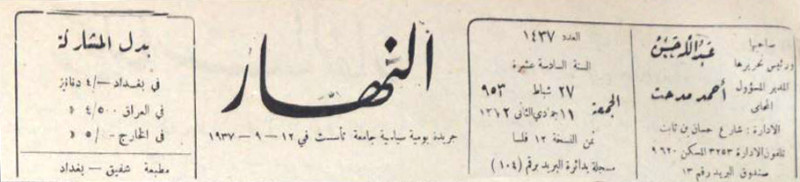 صاحبها
ورئيس تحريرها
عبد الله حسين
المدير المسؤول
أحمد مدحت
المحامي
الادارة : شارع حسان بن ثابت
تلفون الادارة ٣٢٥٣ المسكن ٩٦٢٠
صندوق البريد رقم ١٣
العدد ١٤٣٧
السنة السادسة عشرة
الجمعة
٢٧ شباط ٩٥٣
١١ جمادي الثاني
ثمن النسخة ١٢ فلسا
مسجلة بدائرة البريد برقم (١٠٤)
النهار
جريدة يومية سياسية جامعة تأسست في ١٢ - ٩ - ١٩٣٧
بدل المشاركة
في بغداد ٤/- دنانير
في العراق ٤/٥٠٠ »
في الخارج ٥/٠٠ »
مطبعة شفيق - بغداد